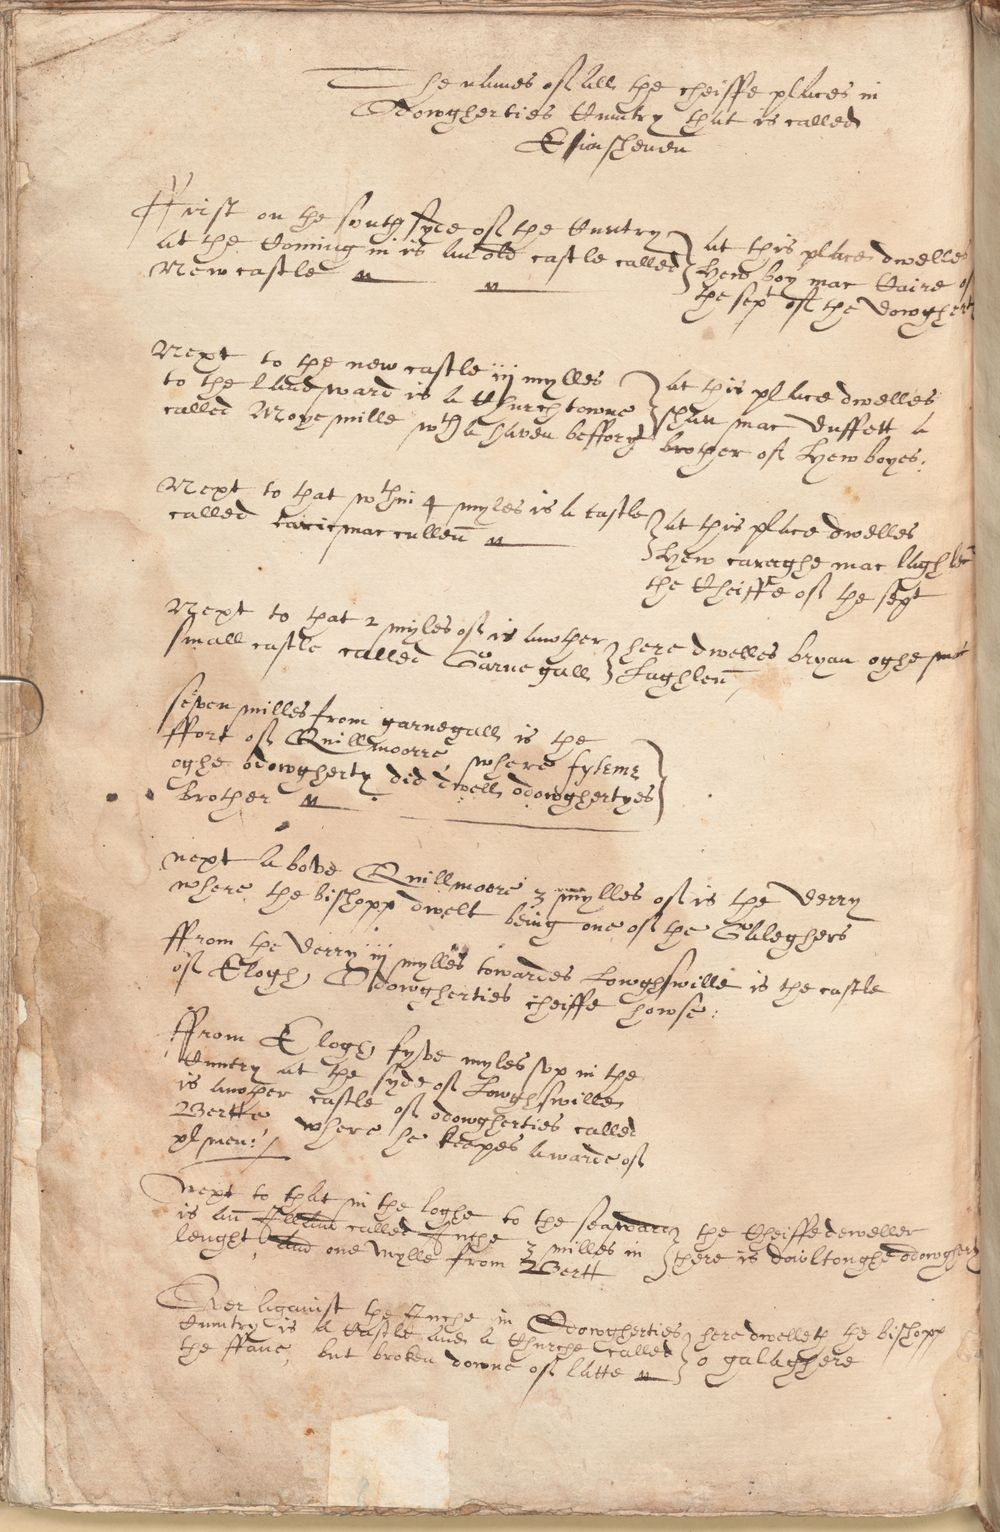 The names of all the cheiffe places in
Odowgherties Cuntry that is called
Eñisheueñ
Ffrist on the south syde of the Cuntry
at the Coming in is an old castle called
New castle
at this place dwelles
Hew boy mac Caire of
the sept of the dowgherty
Next to the new castle iij mylles
to the landsward is a Church towne
called Moyemille wth a haven beffory
at this place dwelles
shan mac duffett a
brother of Hew boyes:
Next to that wthin 4 myles is a castle
called caricmac culleñ
at this place dwelles
Hew caraghe mac laghleñ
the Cheiffe of the sept
Next to that 2 myles of is another
small castle called Garnegall
here dwelles bryan oghe mac
Laghleñ
seven milles from garnegall is the
ffort of Quillmoorre, where
oghe odowgherty did dwell odowghertyes
brother
next above Quillmoore 3 mylles of is the derry
where the bishopp dwelt being one of the Galeghers
ffrom the derry iij mylles towardes Lowghswille is the castle
of Elogh Odowgherties cheiffe howse:
ffrom Elogh fyve myles vp in the
Cuntry at the syde of Lowghswille
is another castle of odowgherties called
Bertte where he keapes a warde of
pl men:
Next to that in the loghe to the seaward
is an Illand called Inche 3 milles in
lenght, and one Mylle from Bertt
the Cheiffe deweller
there is doultonghe odowgherty
Over against the Inche in Odowgherties
Cuntry is a Castle and a Churche called
the ffane, but broken downe of latte
here dwelleth the bishopp
o galaghere